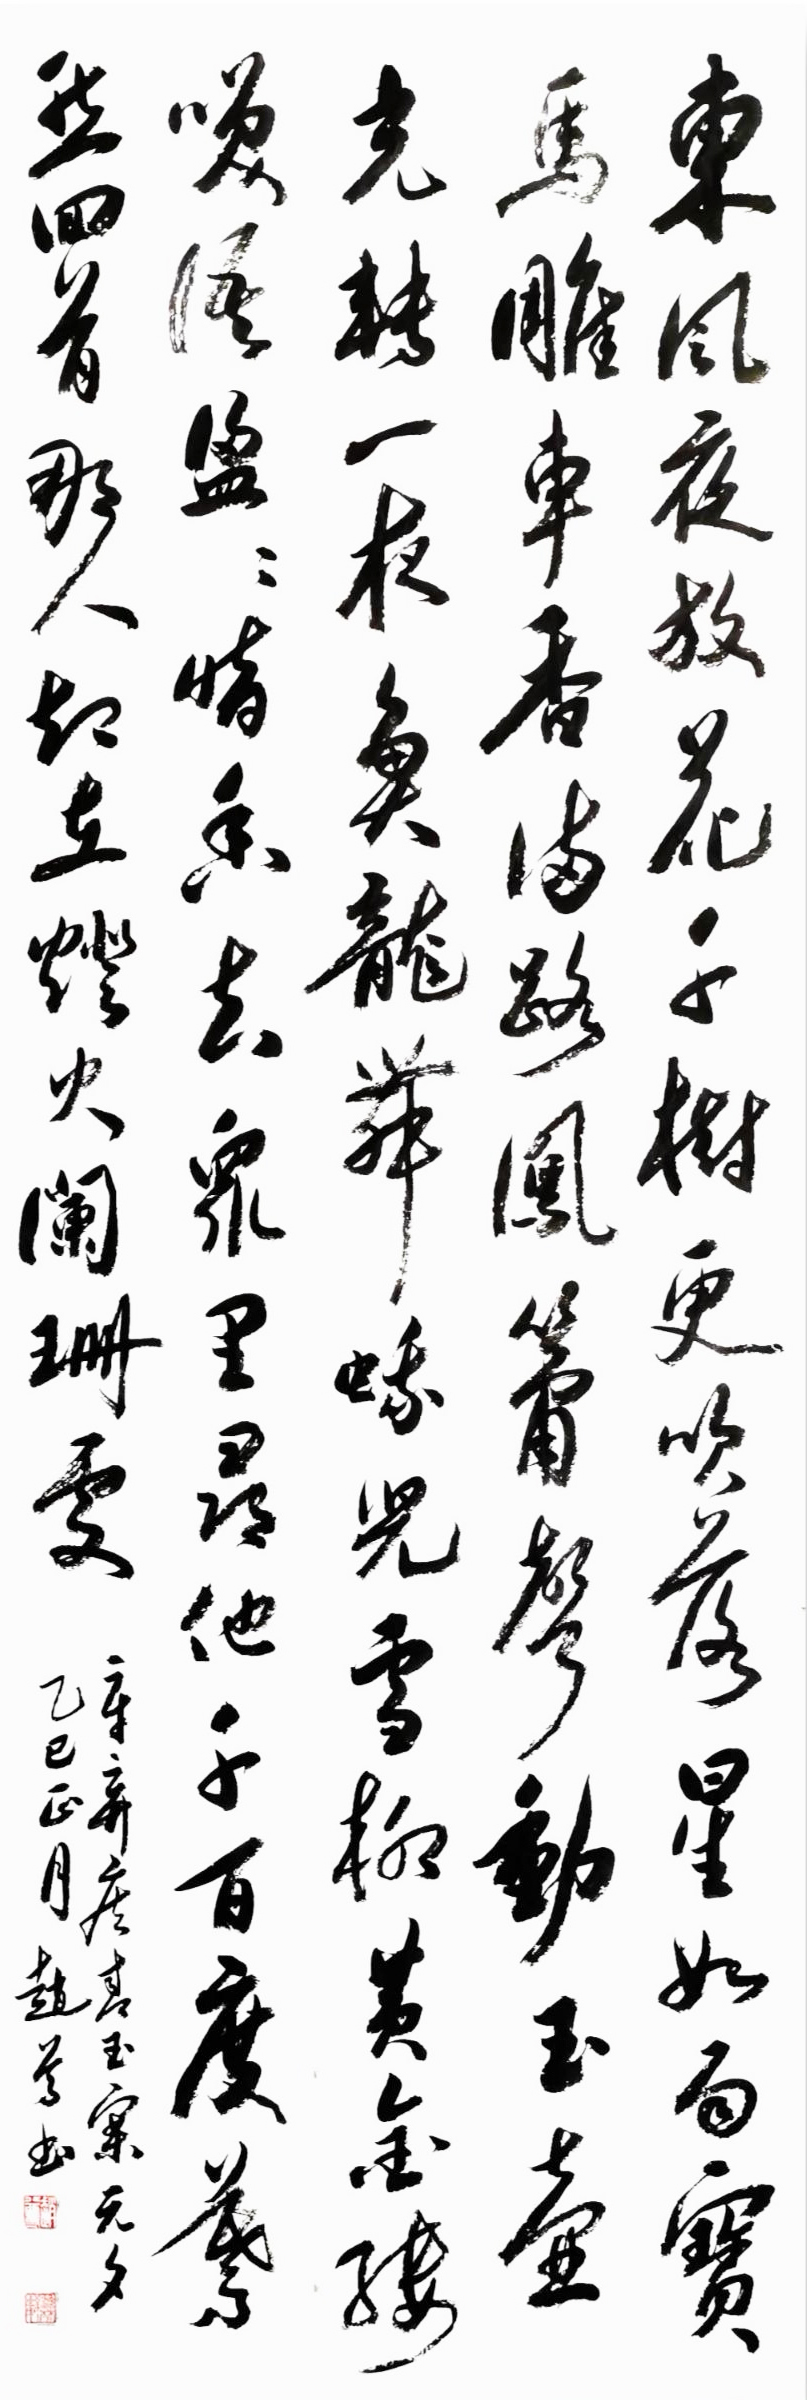 東風夜放花千樹更吹落星如雨寳
馬雕車香滿路鳳簫聲動玉壺
光轉一夜魚龍舞蛾兒雪柳黄金縷
笑語盈〻暗香去衆里尋他千百度驀
然回首那人却在燈火闌珊處
辛弃疾青玉案元夕
乙巳正月趙𦶜書